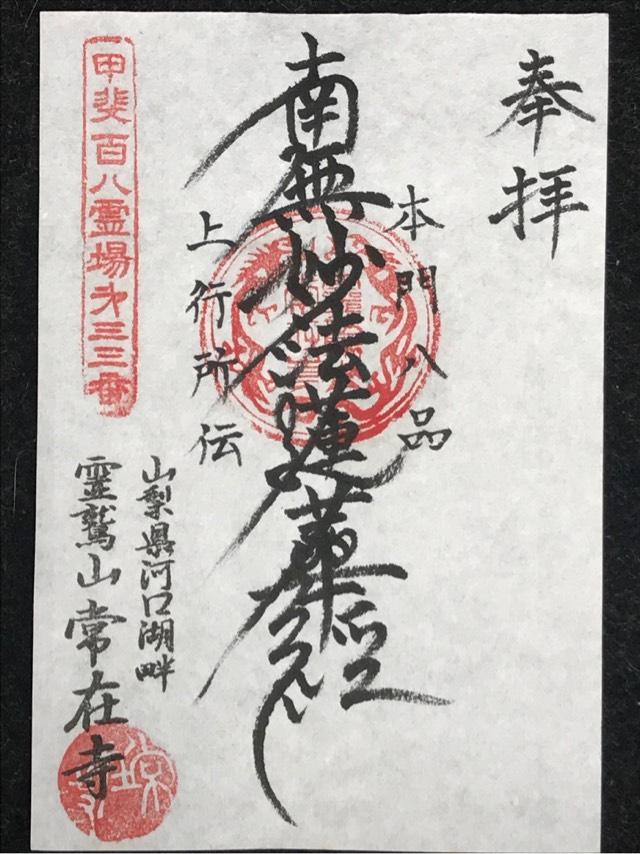 奉拝
本門八品
南無妙法蓮華経
上行所伝
甲斐百八霊場第三三番
山梨県河口湖畔
霊鷲山常在寺